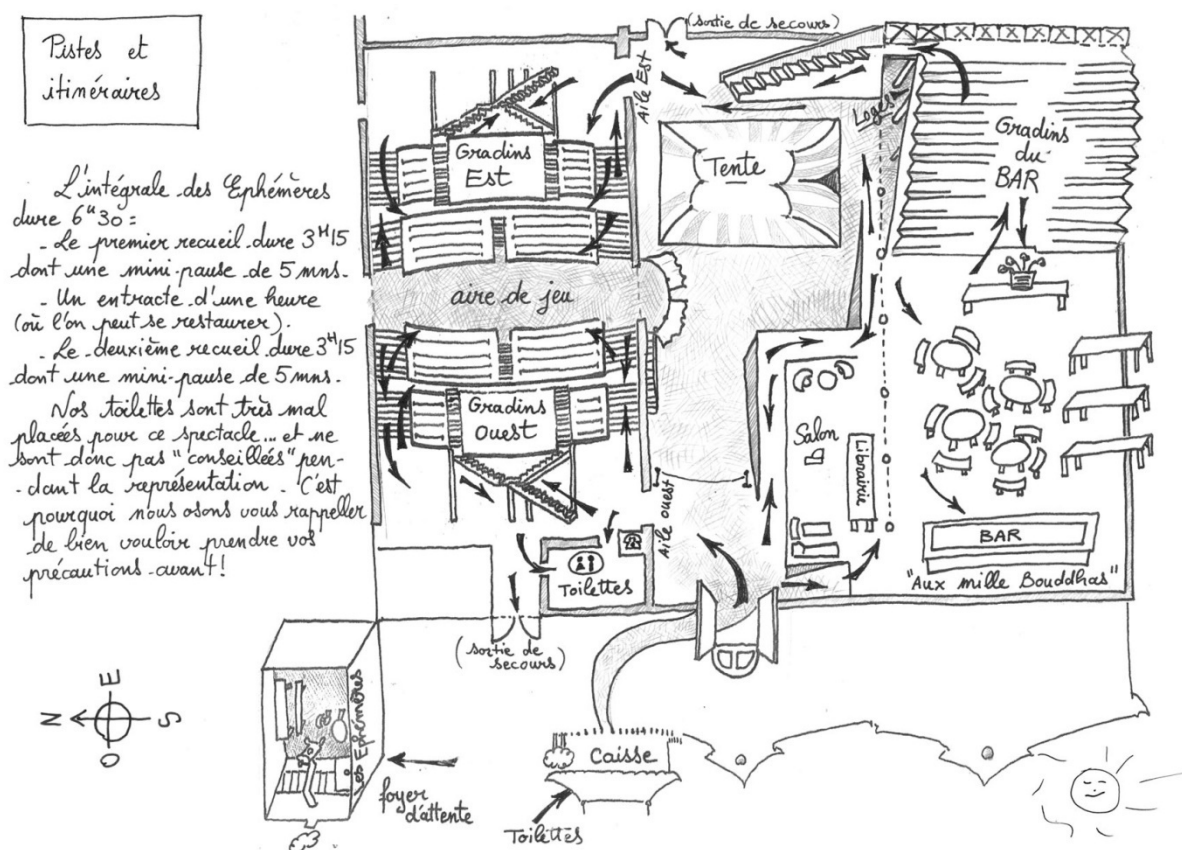 Pistes et
itinéraires
L'intégrale des Ephémères
dure 6H30 :
- Le premier recueil dure 3H15
dont une mini-pause de 5 mns.
- Un entracte d'une heure
(où l'on peut se restaurer).
- Le deuxième recueil dure 3H15
dont une mini-pause de 5 mns.
Nos toilettes sont très mal
placées pour ce spectacle... et ne
sont donc pas "conseillées" pen-
-dant la représentation. C'est
pourquoi nous osons vous rappeller
de bien vouloir prendre vos
précautions avant!
(sortie de secours)
Aile Est
Gradins
Est
Tente
Loges
Gradins
du
BAR
aire de jeu
Gradins
Ouest
Salon
Librairie
Aile ouest
BAR
"Aux mille Bouddhas"
Toilettes
(sortie de
secours)
N
E
S
O
Les Ephémères
foyer
d'attente
Caisse
Toilettes